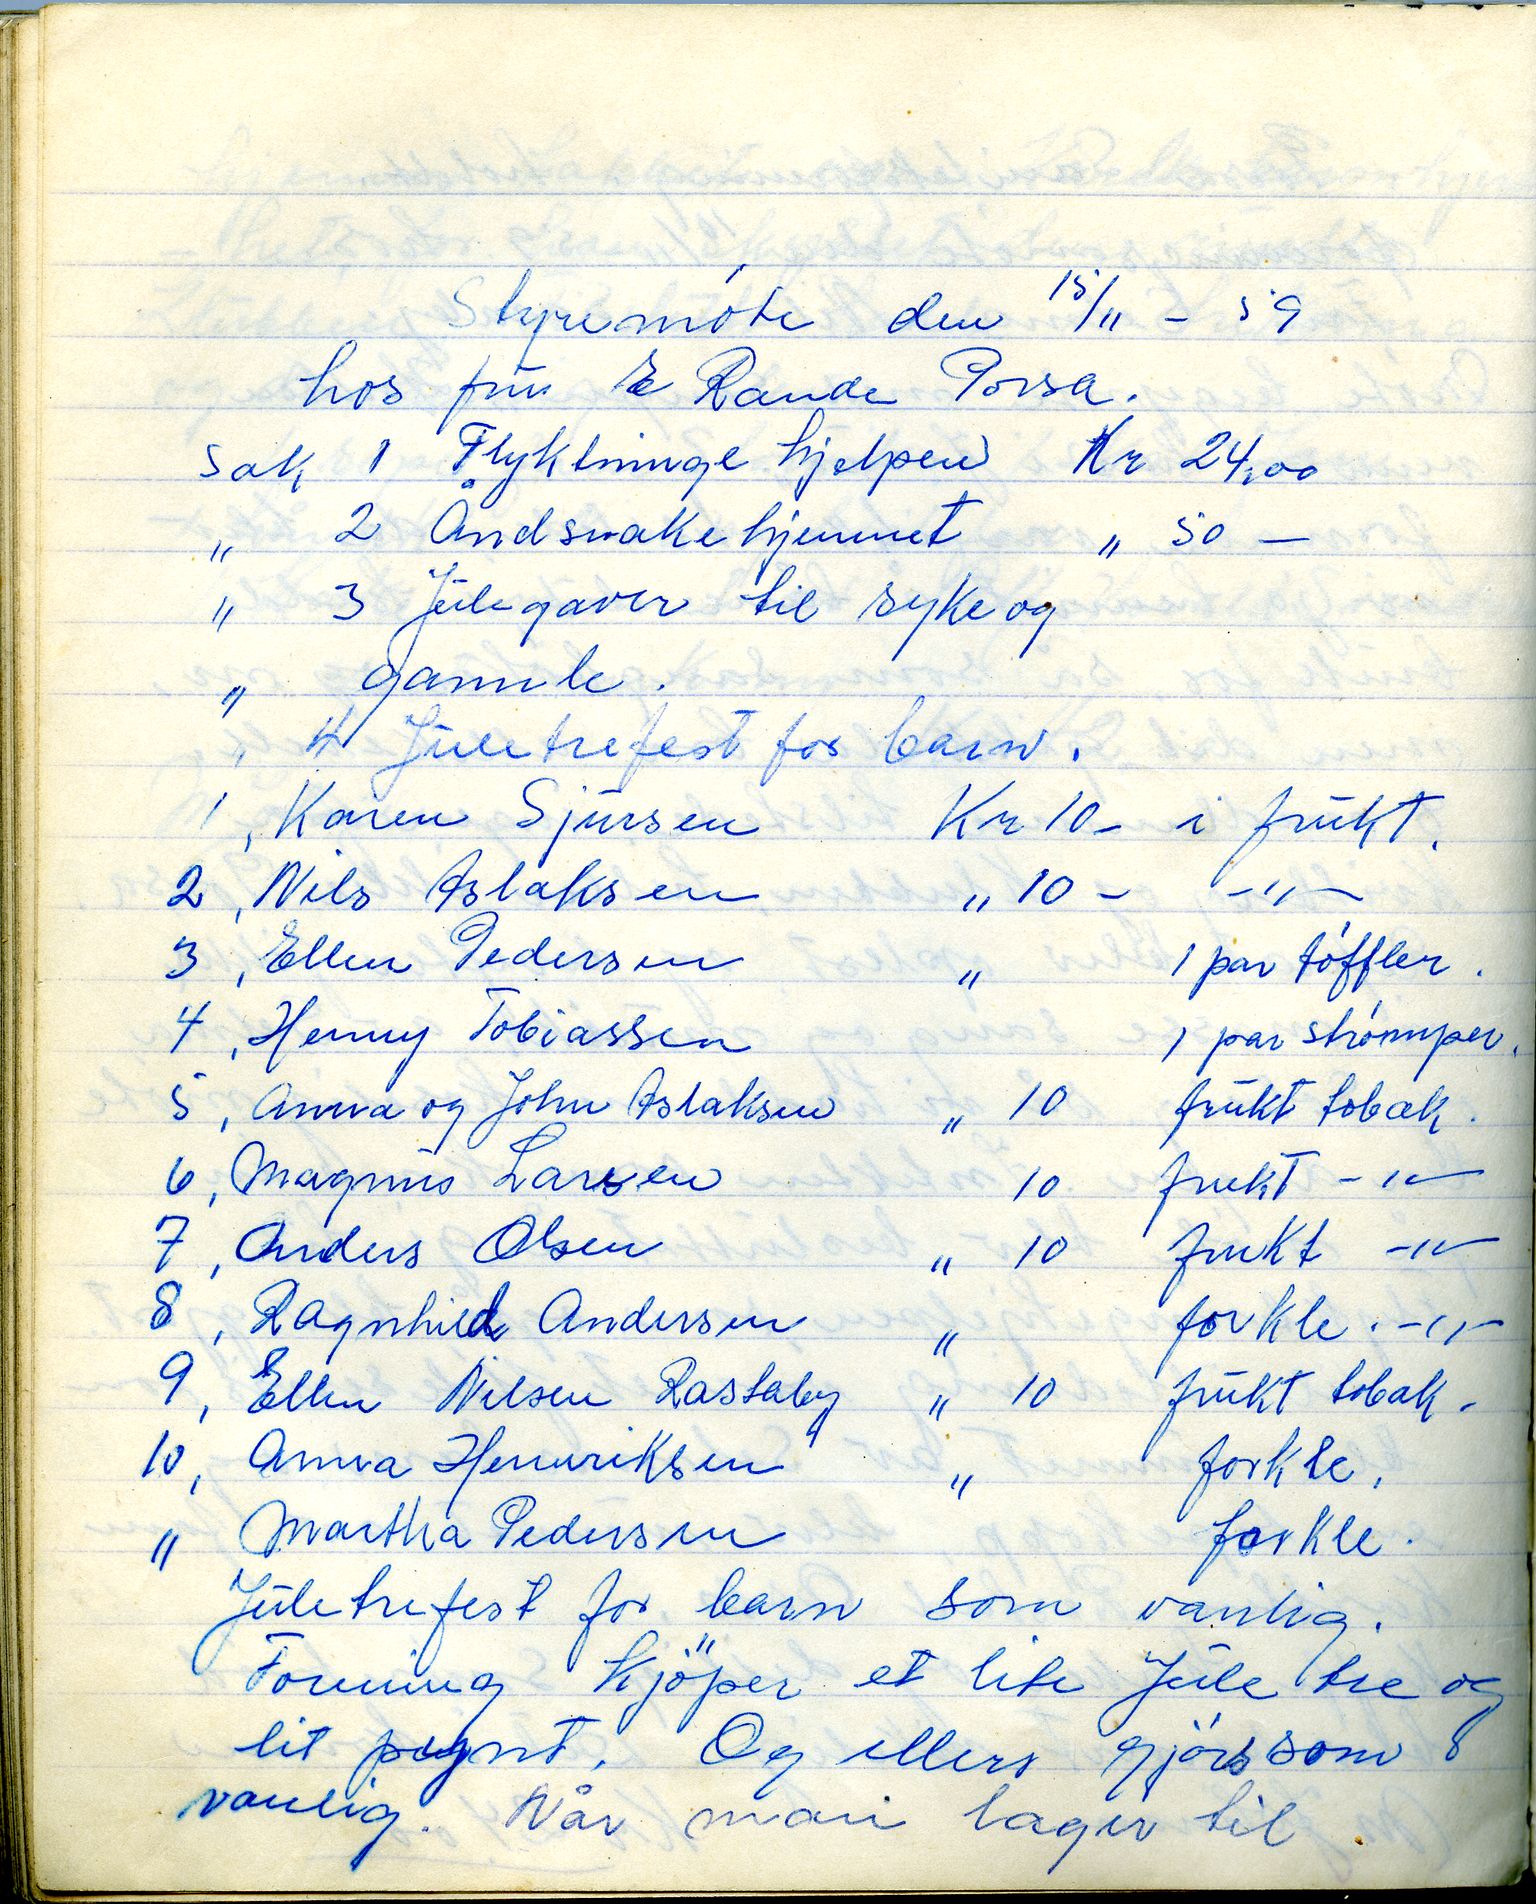 Styremöte den 15/11 - 59
hos fru E Rande Porsa.
Sak 1 Flyktninge hjelpen Kr 24,00
„ 2 Åndsvakehjemmet „ 50 —
„ 3 Julegaver til syke og
„ gamle.
„ 4 Juletrefest for barn.
1, Karen Sjursen Kr 10 - i frukt.
2, Nils Aslaksen „ 10 - -„-
3, Ellen Pedersen „ 1 par töffler.
4, Henny Tobiassen 1 par strömper.
5, Anna og John Aslaksen „ 10 frukt tobak.
6, Magnus Larsen 10 frukt -„-
7, Anders Olsen „ 10 frukt -„-
8, Ragnhild Andersen „ forkle. -„-
9, Ellen Nilsen Rastaby „ 10 frukt tobak.
10, Anna Henriksen „ forkle.
„ Martha Pedersen forkle.
Juletrefest for barn som vanlig.
Forening kjöper et lite Jule tre og
lit pynt. Og ellers gjörs som
vanlig. Når man lager til